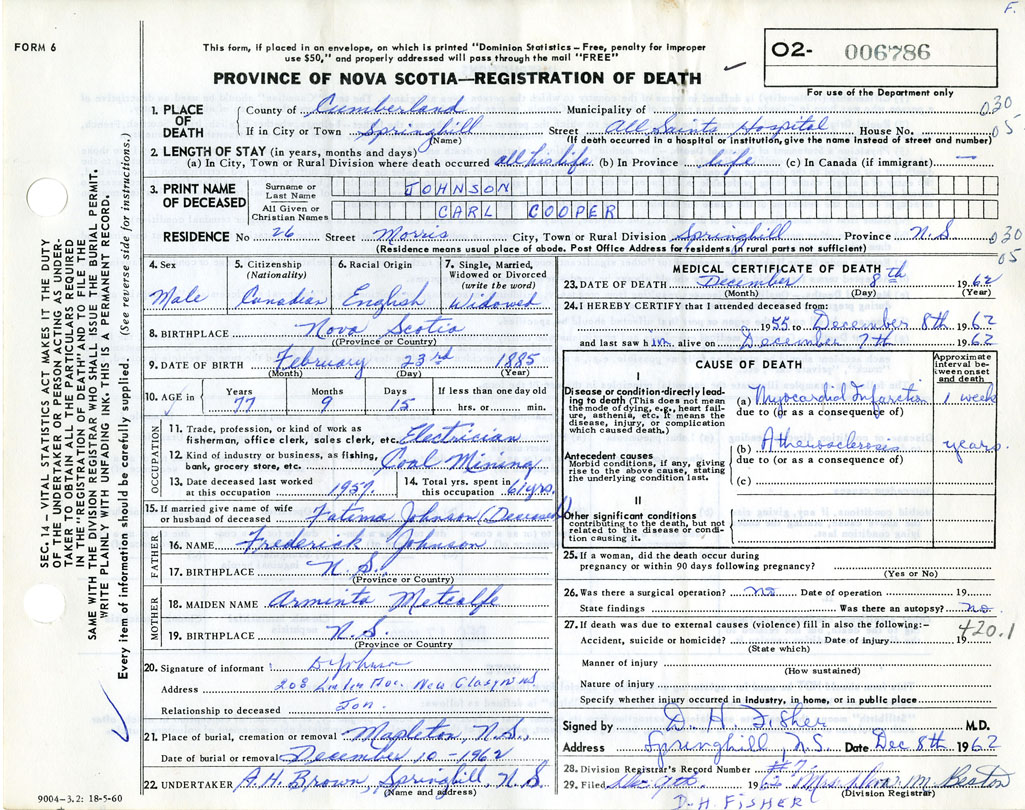 F.
FORM 6
This form, if placed in an envelope, on which is printed "Dominion Statistics – Free, penalty for improper
use $50," and properly addressed will pass through the mail "FREE"
PROVINCE OF NOVA SCOTIA—REGISTRATION OF DEATH
O2- 006786
For use of the Department only
SEC. 14 – VITAL STATISTICS ACT MAKES IT THE DUTY
OF THE UNDERTAKER OR PERSON ACTING AS UNDER-
TAKER TO OBTAIN ALL THE PARTICULARS REQUIRED
IN THE "REGISTRATION OF DEATH" AND TO FILE THE
SAME WITH THE DIVISION REGISTRAR WHO SHALL ISSUE THE BURIAL PERMIT.
WRITE PLAINLY WITH UNFADING INK. THIS IS A PERMANENT RECORD.
Every item of information should be carefully supplied. (See reverse side for instructions.)
1. PLACE OF DEATH
County of Cumberland Municipality of 030
If in City or Town Springhill Street All Saints Hospital House No. 05
(Name) (If death occurred in a hospital or institution, give the name instead of street and number)
2. LENGTH OF STAY (in years, months and days)
(a) In City, Town or Rural Division where death occurred all his life (b) In Province life (c) In Canada (if immigrant) —
3. PRINT NAME OF DECEASED
Surname or Last Name JOHNSON
All Given or Christian Names CARL COOPER
RESIDENCE No 26 Street Morris City, Town or Rural Division Springhill Province N.S. 030
(Residence means usual place of abode. Post Office Address for residents in rural parts not sufficient) 05
4. Sex Male
5. Citizenship (Nationality) Canadian
6. Racial Origin English
7. Single, Married, Widowed or Divorced (write the word) Widowed
8. BIRTHPLACE Nova Scotia
(Province or Country)
9. DATE OF BIRTH February 23rd 1885
(Month) (Day) (Year)
10. AGE in Years 77 Months 9 Days 15 If less than one day old hrs. or min.
OCCUPATION
11. Trade, profession, or kind of work as
fisherman, office clerk, sales clerk, etc. Electrician
12. Kind of industry or business, as fishing,
bank, grocery store, etc. Coal Mining
13. Date deceased last worked at this occupation 1957.
14. Total yrs. spent in this occupation 61 yrs.
15. If married give name of wife
or husband of deceased Fatima Johnson (Deceased)
FATHER
16. NAME Frederick Johnson
17. BIRTHPLACE N.S.
(Province or Country)
MOTHER
18. MAIDEN NAME Arminta Metcalfe
19. BIRTHPLACE N.S.
(Province or Country)
20. Signature of informant Johnson
Address 208 Ave. New Glasgow N.S
Relationship to deceased Son.
21. Place of burial, cremation or removal Mapleton, N.S.,
Date of burial or removal December 10 – 1962
22. UNDERTAKER A.H. Brown, Springhill, N.S.
(Name and address)
9004–3.2: 18-5-60
MEDICAL CERTIFICATE OF DEATH
23. DATE OF DEATH December 8th 1962
(Month) (Day) (Year)
24. I HEREBY CERTIFY that I attended deceased from:
1955 to December 8th 1962
and last saw him alive on December 7th 1962
CAUSE OF DEATH
Approximate interval between onset and death
I
Disease or condition directly leading to death (This does not mean the mode of dying, e.g., heart failure, asthenia, etc. It means the disease, injury, or complication which caused death.)
(a) Myocardial Infarction 1 week
due to (or as a consequence of)
Antecedent causes
Morbid conditions, if any, giving rise to the above cause, stating the underlying condition last.
(b) Atherosclerosis years.
due to (or as a consequence of)
(c)
II
Other significant conditions
contributing to the death, but not related to the disease or condition causing it.
25. If a woman, did the death occur during
pregnancy or within 90 days following pregnancy?
(Yes or No)
26. Was there a surgical operation? no. Date of operation 19
State findings Was there an autopsy? no.
27. If death was due to external causes (violence) fill in also the following:- 420.1
Accident, suicide or homicide? Date of injury 19
(State which)
Manner of injury
(How sustained)
Nature of injury
Specify whether injury occurred in industry, in home, or in public place
Signed by D. H. Fisher M.D.
Address Springhill, N.S. Date Dec 8th 1962
28. Division Registrar's Record Number
29. Filed 1962 Mrs M. Beaton
(Division Registrar)
D.H. FISHER